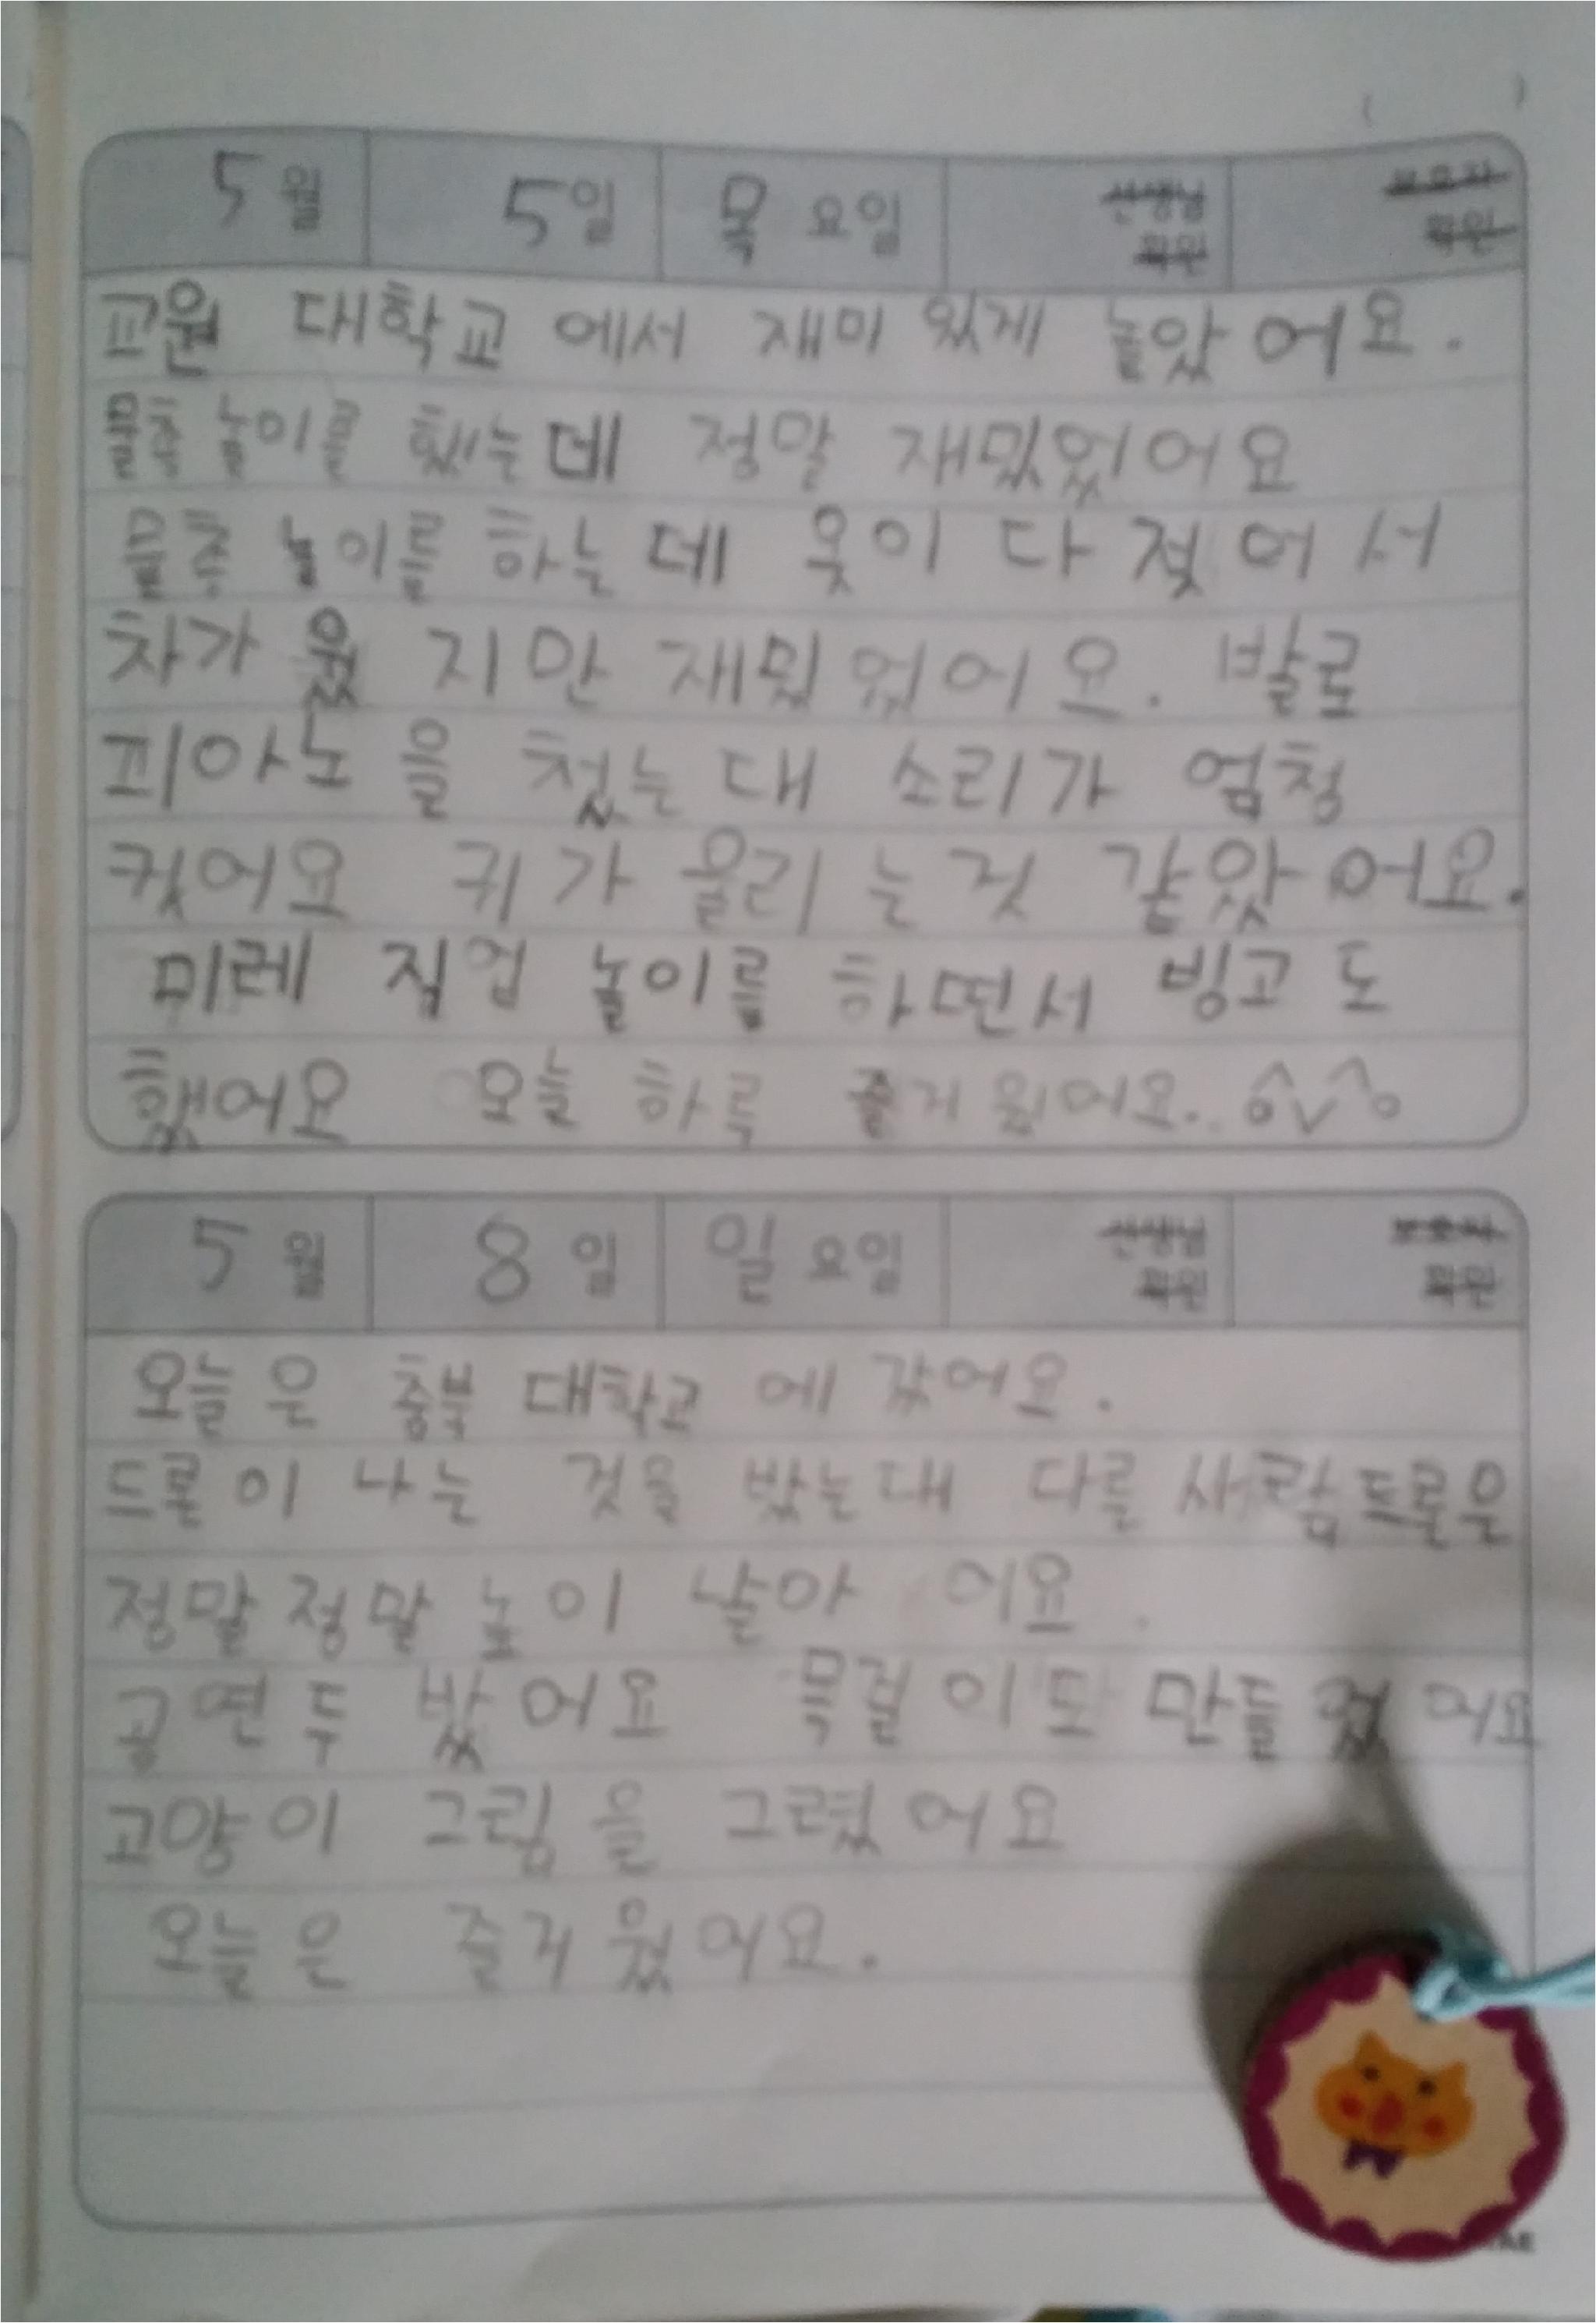 5월 5일 목요일 선생님 확인 부모님 확인
교원 대학교 에서 재미 있게 놀았어요.
물총 놀이를 했는데 정말 재밌었어요
물총 놀이를 하는데 옷이 다 젖어서
차가웠지만 재밌었어요. 발로
피아노을 쳤는대 소리가 엄청
컷어요 귀가 울리는것 같았어요.
미레 직업 놀이를 하면서 빙고도
했어요 오늘 하루 즐거웠어요.. ^^
5월 8일 일요일 선생님 확인 확인
오늘은 충북 대학교 에 갔어요.
드론이 나는 것을 밨는대 다른 사람 드론은
정말 정말 높이 날아 어요.
공연두 밨어요 목걸이도 만들었어요
고양이 그림을 그렸어요
오늘은 즐거웠어요.